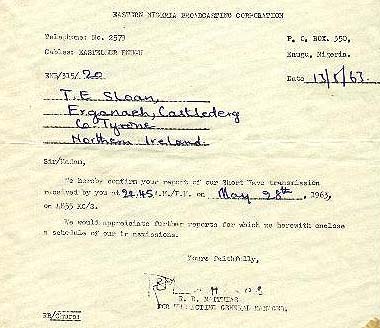 EASTERN NIGERIA BROADCASTING CORPORATION
Telephone: No. 2579
P. O. BOX. 350,
Cables: EASTELCOR ENUGU
Enugu, Nigeria.
ENB/315/20
Date 13/6/63.
T.E Sloan,
Erganagh, Castlederg
Co. Tyrone
Northern Ireland.
Sir/Madam,
We hereby confirm your report of our Short Wave transmission
received by you at 22.45 A.M./P.M. on May 28th, 1963,
on 4855 KC/S.
We would appreciate further reports for which we herewith enclose
a schedule of our transmissions.
Yours faithfully,
FOR DIRECTING GENERAL MANAGER.